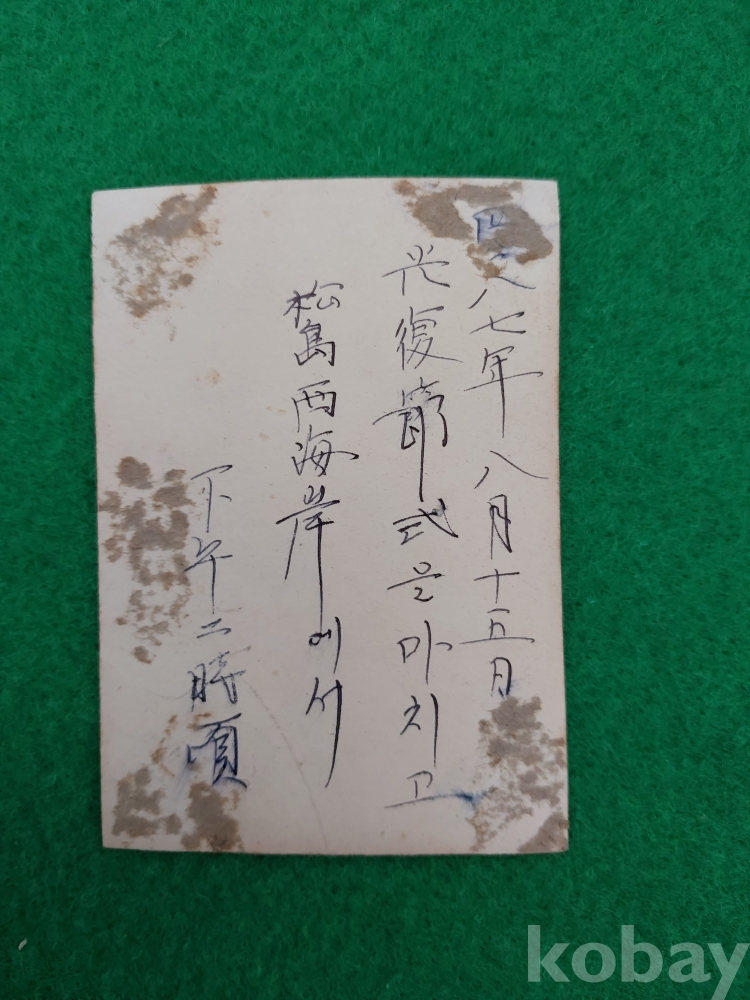 四二八七年八月十五日
光復節式을마치고
松島西海岸에서
下午二時頃
kobay